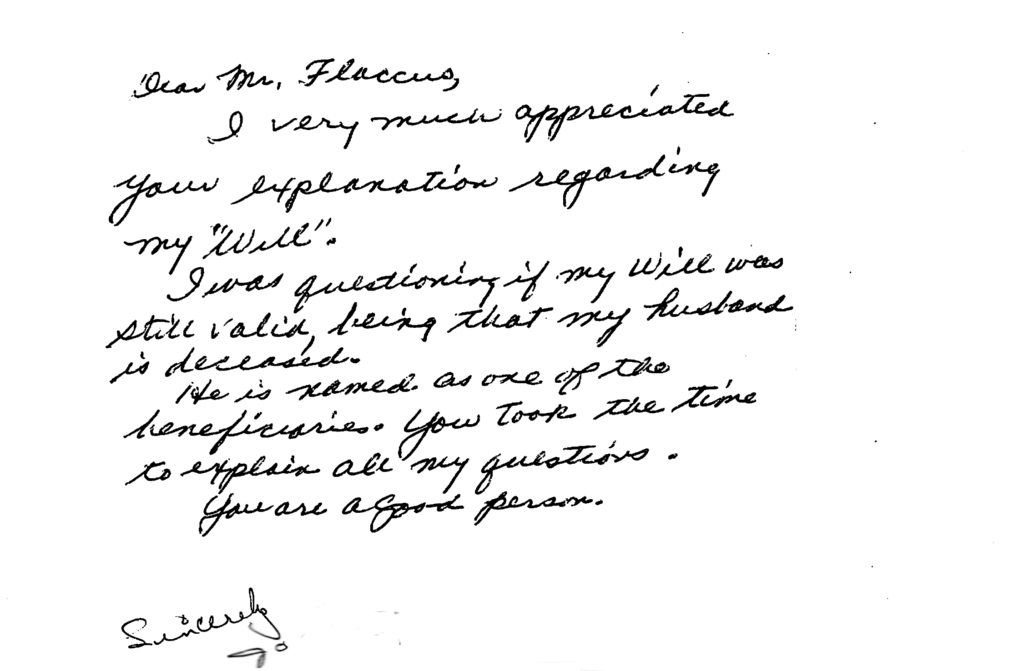 Dear Mr. Flaccus,
I very much appreciated
your explanation regarding
my "Will".
I was questioning if my Will was
still valid, being that my husband
is deceased.
He is named as one of the
beneficiaries. You took the time
to explain all my questions.
You are a good person.
Sincerely